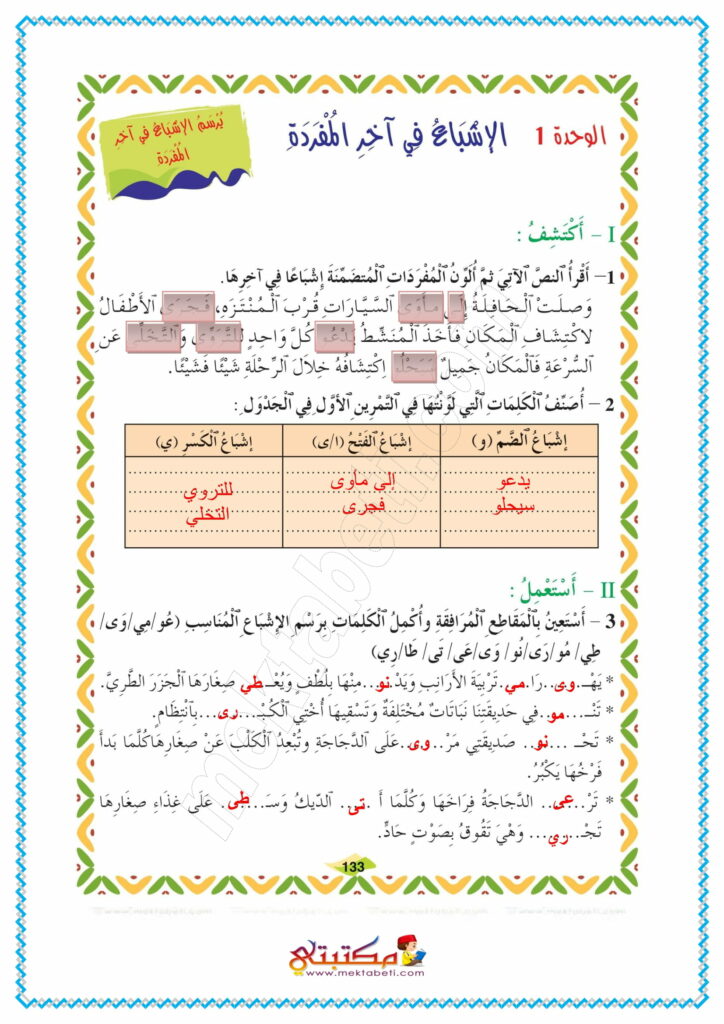 الوحدة 1 الإِشْبَاعُ فِي آخِرِ المُفْرَدَةِ
يُرْسَمُ الإِشْبَاعُ فِي آخِرِ
المُفْرَدَةِ
I - أَكْتَشِفُ :
1- أَقْرَأُ ٱلنصَّ ٱلآتِيَ ثمَّ أُلَوِّنُ ٱلْمُفْرَدَاتِ ٱلْمُتضَمِّنَةَ إِشْبَاعًا فِي آخِرِهَا.
وَصلَتْ ٱلْحَافِلَةُ إِلَى مَأْوَى السَّيَّارَاتِ قُرْبَ ٱلْمُنْتَزَهِ، فَجَرَى الأَطْفَالُ
لاكْتِشَافِ ٱلْمَكَانِ فَأَخَذَ ٱلْمُنَشِّطُ يَدْعُو كُلَّ وَاحِدٍ لِلتَّرَوِّي وَٱلتَّخَلِّي عَنِ
السُّرْعَةِ فَٱلْمَكَانُ جَمِيلٌ سَيَحْلُو اِكْتِشَافُهُ خِلَالَ ٱلرِّحْلَةِ شَيْئًا فَشَيْئًا.
2 - أُصَنِّفُ ٱلْكَلِمَاتِ ٱلَّتِي لَوَّنْتُهَا فِي ٱلتَّمْرِينِ ٱلأَوَّلِ فِي ٱلْجَدْوَلِ :
إِشْبَاعُ ٱلضَّمِّ (و) إِشْبَاعُ ٱلفَتْحُ (ا/ى) إِشْبَاعُ ٱلْكَسْرِ (ي)
يدعو إلي مأوى للتروي
سيحلو فجرى التخلي
II - أَسْتَعْمِلُ :
3 - أَسْتَعِينُ بِٱلْمَقَاطِعِ ٱلْمُرَافِقَةِ وأُكْمِلُ ٱلْكَلِمَاتِ بِرَسْمِ ٱلإِشْبَاعِ ٱلْمُنَاسِبِ (عُو/مِي/وَى/
طِي/ مُو/رَى/نُو/ وَى/عَى/ تَى/ طَا/رِي)
* يَهْـ..وى..رَا..مي.تَرْبِيَةَ الأَرَانِبِ وَيَدْ..نو..مِنْهَا بِلُطْفٍ وَيُعْـ..طي صِغَارَهَا ٱلْجَزَرَ الطَّرِيَّ.
* تَنْـ....مو..فِي حَدِيقَتِنَا نَبَاتَاتٌ مُخْتَلِفَةٌ وَتَسْقِيهَا أُخْتِي ٱلْكُبْـ...رى...بِٱنْتِظَامٍ.
* تَحْـ ....نو.. صَدِيقَتِي مَرْ...وى..عَلَى الدَّجَاجَةِ وتُبْعِدُ ٱلْكَلْبَ عَنْ صِغَارِهَا كُلَّمَا بَدَأَ
فَرْخُهَا يَكْبُرُ.
* تَرْ...عى.. الدَّجَاجَةُ فِرَاخَهَا وَكُلَّمَا أَ .تى. ٱلدِّيكُ وَسَـ..طى... عَلَى غِذَاءِ صِغَارِهَا
تَجْـ...ري... وَهْيَ تَقُوقُ بِصَوْتٍ حَادٍّ.
133
مكتبتي
www.mektabeti.com
mektabeti.com